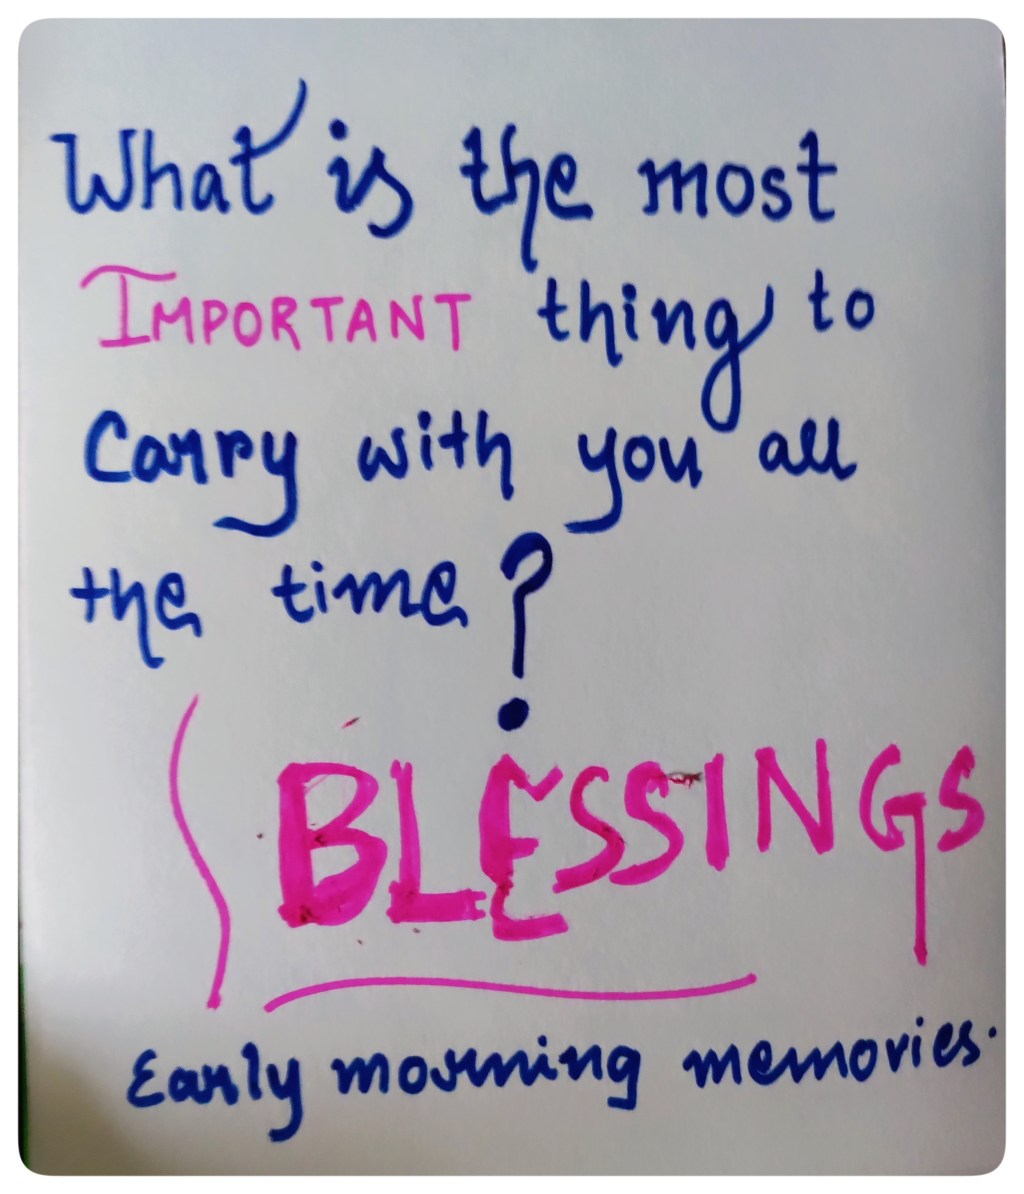 What is the most
IMPORTANT thing to
Carry with you all
the time?
BLESSINGS
Early morning memories.